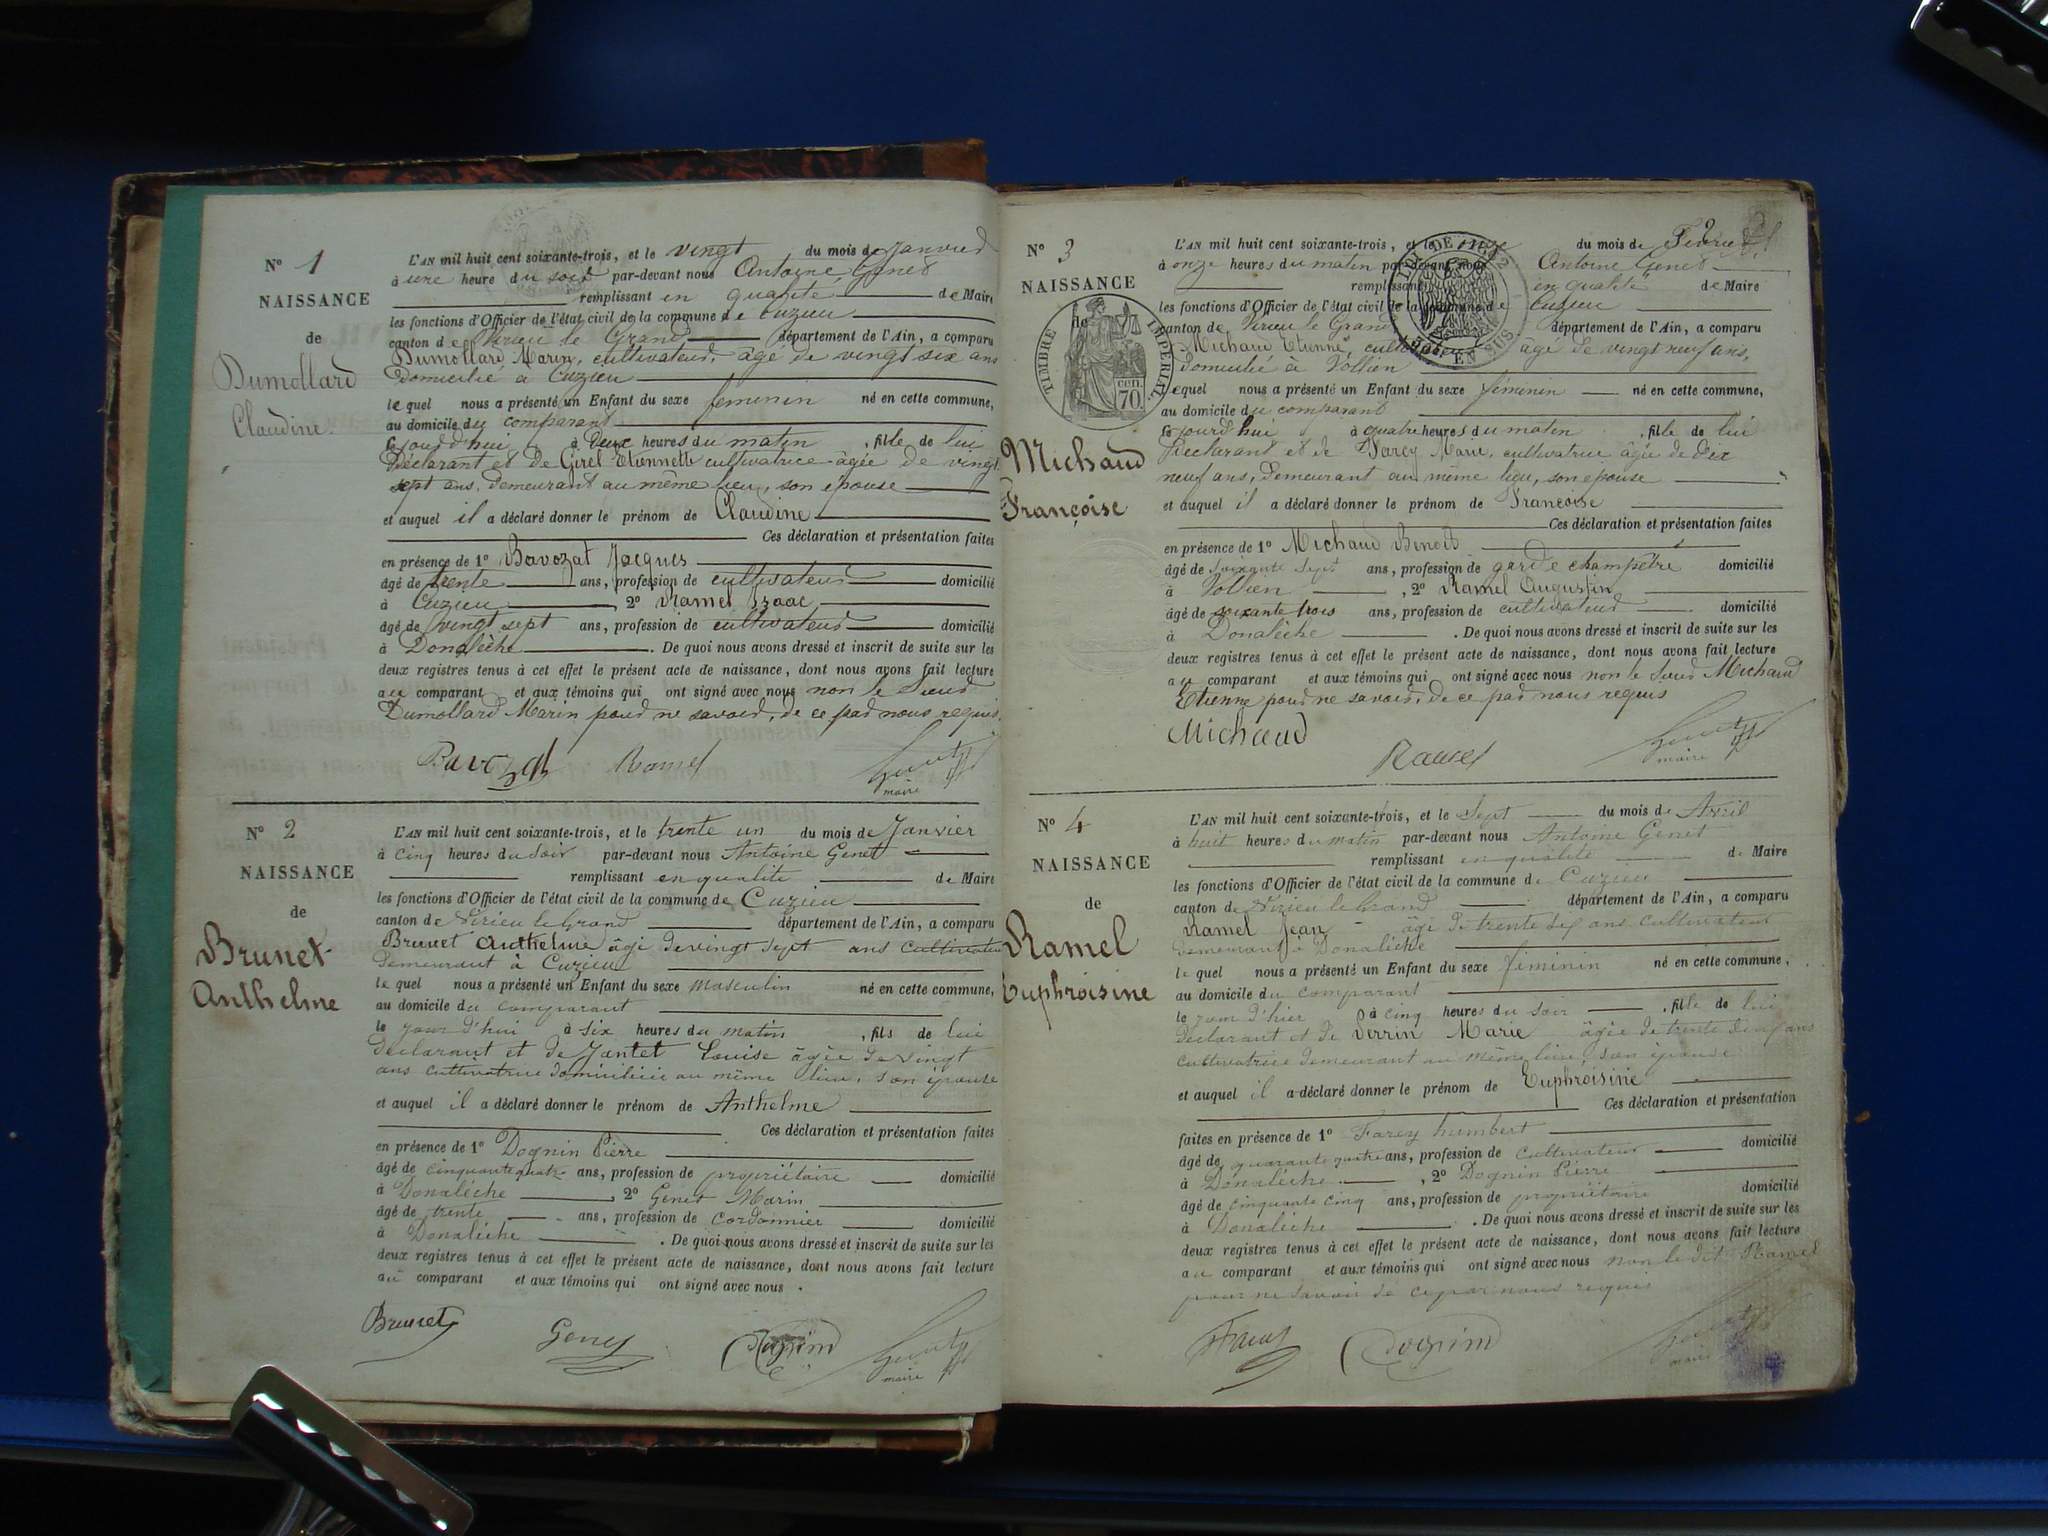 N° 1
NAISSANCE
de
Dumollard
Claudine.
L'AN mil huit cent soixante-trois, et le vingt du mois de Janvier
à une heure du soir par-devant nous Antoine Genet
remplissant en qualité de Maire
les fonctions d'Officier de l'état civil de la commune de Cuzieu
canton de Virieu le Grand département de l'Ain, a comparu
Dumollard Marin, cultivateur, âgé de vingt six ans
domicilié à Cuzieu
lequel nous a présenté un Enfant du sexe féminin né en cette commune,
au domicile du comparant
ce jourd'hui à Deux heures du matin , fille de lui
Déclarant et de Girel Etiennette cultivatrice âgée de vingt
sept ans, demeurant au même lieu, son épouse
et auquel il a déclaré donner le prénom de Claudine
Ces déclaration et présentation faites
en présence de 1° Bavozat Jacques
âgé de trente ans, profession de cultivateur domicilié
à Cuzieu , 2° Ramel Izaac
âgé de vingt sept ans, profession de cultivateur domicilié
à Donalèche . De quoi nous avons dressé et inscrit de suite sur les
deux registres tenus à cet effet le présent acte de naissance, dont nous avons fait lecture
au comparant et aux témoins qui ont signé avec nous non le Sieur
Dumollard Marin pour ne savoir, de ce par nous requis.
Bavozat Ramel
maire
N° 2
NAISSANCE
de
Brunet
Anthelme
L'AN mil huit cent soixante-trois, et le trente un du mois de Janvier
à cinq heures du soir par-devant nous Antoine Genet
remplissant en qualité de Maire
les fonctions d'Officier de l'état civil de la commune de Cuzieu
canton de Virieu le Grand département de l'Ain, a comparu
Brunet Anthelme âgé de vingt sept ans cultivateur
demeurant à Cuzieu
lequel nous a présenté un Enfant du sexe masculin né en cette commune,
au domicile du comparant
le jour d'hui à six heures du matin , fils de lui
déclarant et de Jantet Louise âgée de vingt
ans cultivatrice domiciliée au même lieu, son épouse
et auquel il a déclaré donner le prénom de Anthelme
Ces déclaration et présentation faites
en présence de 1° Dognin Pierre
âgé de cinquante quatre ans, profession de propriétaire domicilié
à Donalèche , 2° Genet Marin
âgé de trente ans, profession de cordonnier domicilié
à Donalèche . De quoi nous avons dressé et inscrit de suite sur les
deux registres tenus à cet effet le présent acte de naissance, dont nous avons fait lecture
au comparant et aux témoins qui ont signé avec nous .
Brunet Genet Dognin
maire
2
N° 3
NAISSANCE
de
TIMBRE IMPERIAL
70 cen.
Michaud
Françoise
L'AN mil huit cent soixante-trois, et le onze du mois de Février
à onze heures du matin par-devant nous Antoine Genet
remplissant en qualité de Maire
les fonctions d'Officier de l'état civil de la commune de Cuzieu
canton de Virieu le Grand département de l'Ain, a comparu
Michaud Etienne, cultivateur âgé de vingt neuf ans,
domicilié à Vollien
EN SUS
lequel nous a présenté un Enfant du sexe féminin né en cette commune,
au domicile du comparant
ce jourd'hui à quatre heures du matin , fille de lui
Déclarant et de Marie, cultivatrice âgée de dix
neuf ans, demeurant au même lieu, son épouse
et auquel il a déclaré donner le prénom de Françoise
Ces déclaration et présentation faites
en présence de 1° Michaud Benoit
âgé de soixante sept ans, profession de garde champêtre domicilié
à Vollien , 2° Ramel Augustin
âgé de soixante trois ans, profession de cultivateur domicilié
à Donalèche . De quoi nous avons dressé et inscrit de suite sur les
deux registres tenus à cet effet le présent acte de naissance, dont nous avons fait lecture
au comparant et aux témoins qui ont signé avec nous non le Sieur Michaud
Etienne pour ne savoir, de ce par nous requis
Michaud
Ramel
maire
N° 4
NAISSANCE
de
Ramel
Euphroisine
L'AN mil huit cent soixante-trois, et le sept du mois de Avril
à huit heures du matin par-devant nous Antoine Genet
remplissant en qualité de Maire
les fonctions d'Officier de l'état civil de la commune de Cuzieu
canton de Virieu le Grand département de l'Ain, a comparu
Ramel Jean âgé de trente ans cultivateur
demeurant à Donalèche
lequel nous a présenté un Enfant du sexe féminin né en cette commune,
au domicile du comparant
le jour d'hier à cinq heures du soir , fille de lui
déclarant et de Perrin Marie âgée de trente ans
cultivatrice demeurant au même lieu, son épouse
et auquel il a déclaré donner le prénom de Euphroisine
Ces déclaration et présentation
faites en présence de 1° Farcy humbert
âgé de quarante quatre ans, profession de cultivateur domicilié
à Donalèche , 2° Dognin Pierre
âgé de cinquante cinq ans, profession de propriétaire domicilié
à Donalèche . De quoi nous avons dressé et inscrit de suite sur les
deux registres tenus à cet effet le présent acte de naissance, dont nous avons fait lecture
au comparant et aux témoins qui ont signé avec nous non le dit Ramel
pour ne savoir de ce par nous requis
Farcy Dognin
maire